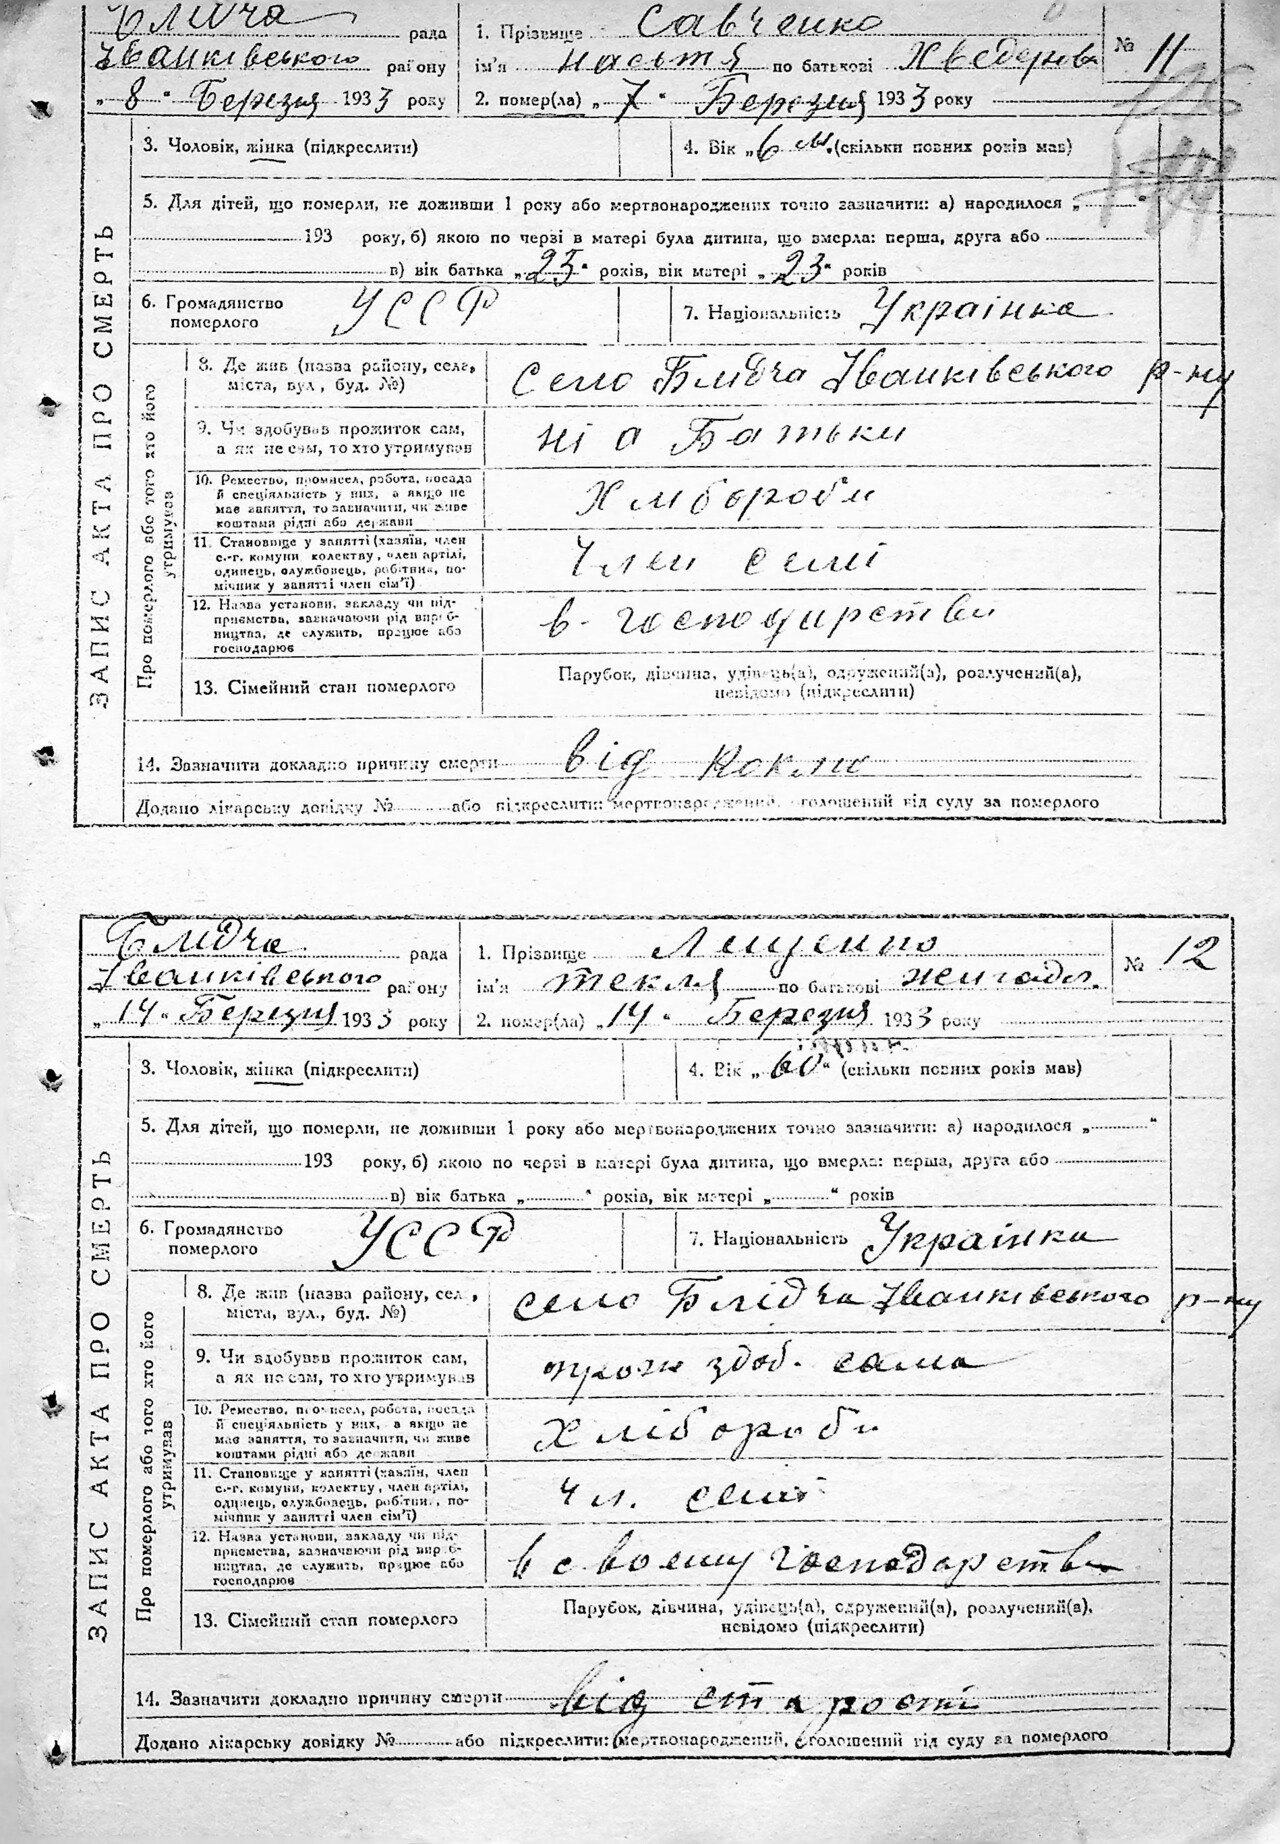 Блидча рада
Іванківського району
„8“ Березня 1933 року
1. Прізвище Савченко
ім'я настя по батькові Хведерова
2. помер(ла) „7“ Березня 1933 року
№ 11
3. Чоловік, жінка (підкреслити)
4. Вік „6 м. (скільки повних років мав)
5. Для дітей, що померли, не доживши 1 року або мертвонароджених точно зазначити: а) народилося „
193 року, б) якою по черзі в матері була дитина, що вмерла: перша, друга або
в) вік батька „25“ років, вік матері „23“ років
6. Громадянство померлого УССР
7. Національність Украінка
ЗАПИС АКТА ПРО СМЕРТЬ
Про померлого або того хто його утримував
8. Де жив (назва району, села,
міста, вул., буд. №)
село Блидча Іванківського р-ну
9. Чи здобував прожиток сам,
а як не сам, то хто утримував
ні а Батьки
10. Ремество, промисел, робота, посада
й спеціяльність у них, а якщо не
має заняття, то зазначити, чи живе
коштами рідні або держави
Хлібороби
11. Становище у занятті (хазяїн, член
с.-г. комуни колективу, член артілі,
одинець, службовець, робітник, по-
мічник у занятті член сім'ї)
Член семі
12. Назва установи, закладу чи під-
приємства, зазначаючи рід вироб-
ництва, де служить, працює або
господарює
в господарстви
13. Сімейний стан померлого
Парубок, дівчина, удівець(а), одружений(а), розлучений(а),
невідомо (підкреслити)
14. Зазначити докладно причину смерти від Коклю
Додано лікарську довідку № або підкреслити: мертвонароджений, оголошений від суду за померлого
Блидча рада
Іванківського району
„14“ Березня 1933 року
1. Прізвище Лещенко
ім'я текля по батькові
2. помер(ла) „14“ Березня 1933 року
№ 12
3. Чоловік, жінка (підкреслити)
4. Вік „60“ (скільки повних років мав)
5. Для дітей, що померли, не доживши 1 року або мертвонароджених точно зазначити: а) народилося „ “
193 року, б) якою по черзі в матері була дитина, що вмерла: перша, друга або
в) вік батька „ “ років, вік матері „ “ років
6. Громадянство померлого УССР
7. Національність Украінка
ЗАПИС АКТА ПРО СМЕРТЬ
Про померлого або того хто його утримував
8. Де жив (назва району, села,
міста, вул., буд. №)
село Блідча Іванківського р-ну
9. Чи здобував прожиток сам,
а як не сам, то хто утримував
прож здоб. сама
10. Ремество, промисел, робота, посада
й спеціяльність у них, а якщо не
має заняття, то зазначити, чи живе
коштами рідні або держави
Хлібороби
11. Становище у занятті (хазяїн, член
с.-г. комуни, колективу, член артілі,
одинець, службовець, робітник, по-
мічник у занятті член сім'ї)
чл. семі
12. Назва установи, закладу чи під-
приємства, зазначаючи рід вироб-
ництва, де служить, працює або
господарює
в своєму господарстви
13. Сімейний стан померлого
Парубок, дівчина, удівець(а), одружений(а), розлучений(а),
невідомо (підкреслити)
14. Зазначити докладно причину смерти від старости
Додано лікарську довідку № або підкреслити: мертвонароджений, оголошений від суду за померлого